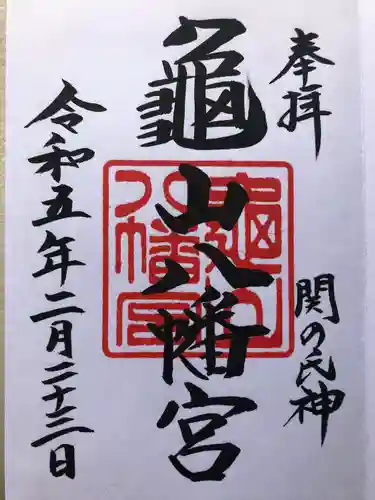 奉拝
関の氏神
亀山八幡宮
龜山八幡宮
令和五年二月二十三日